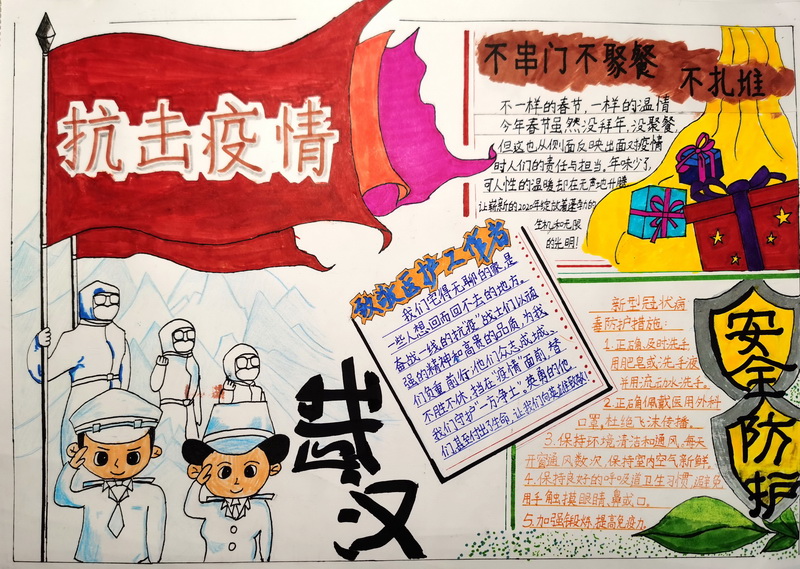 抗击疫情
不串门不聚餐
不扎堆
不一样的春节,一样的温情
今年春节虽然没拜年,没聚餐,
但这也从侧面反映出面对疫情
时人们的责任与担当。年味少了,
可人性的温暖却在无声地升腾
让崭新的2020年绽放着蓬勃的
生机和无限
的光明!
致敬医护工作者
我们觉得无聊的家,是
一些人想回而回不去的地方。
奋战一线的抗疫"战士们以顽
强的精神和高贵的品质,为我
们负重前行.他们众志成城、
不胜不休,挡在"疫情"面前,替
我们守护"一方净土"。英勇的他
们,甚至付出了生命,让我们向英雄致敬!
武汉
新型冠状病
毒防护措施:
1.正确、及时洗手
用肥皂或洗手液
并用流动水洗手。
2.正确佩戴医用外科
口罩,杜绝飞沫传播。
3.保持环境清洁和通风,每天
开窗通风数次,保持室内空气新鲜。
4.保持良好的呼吸道卫生习惯,避免
用手触摸眼睛、鼻或口。
5.加强锻炼,提高免疫力.
安全防护